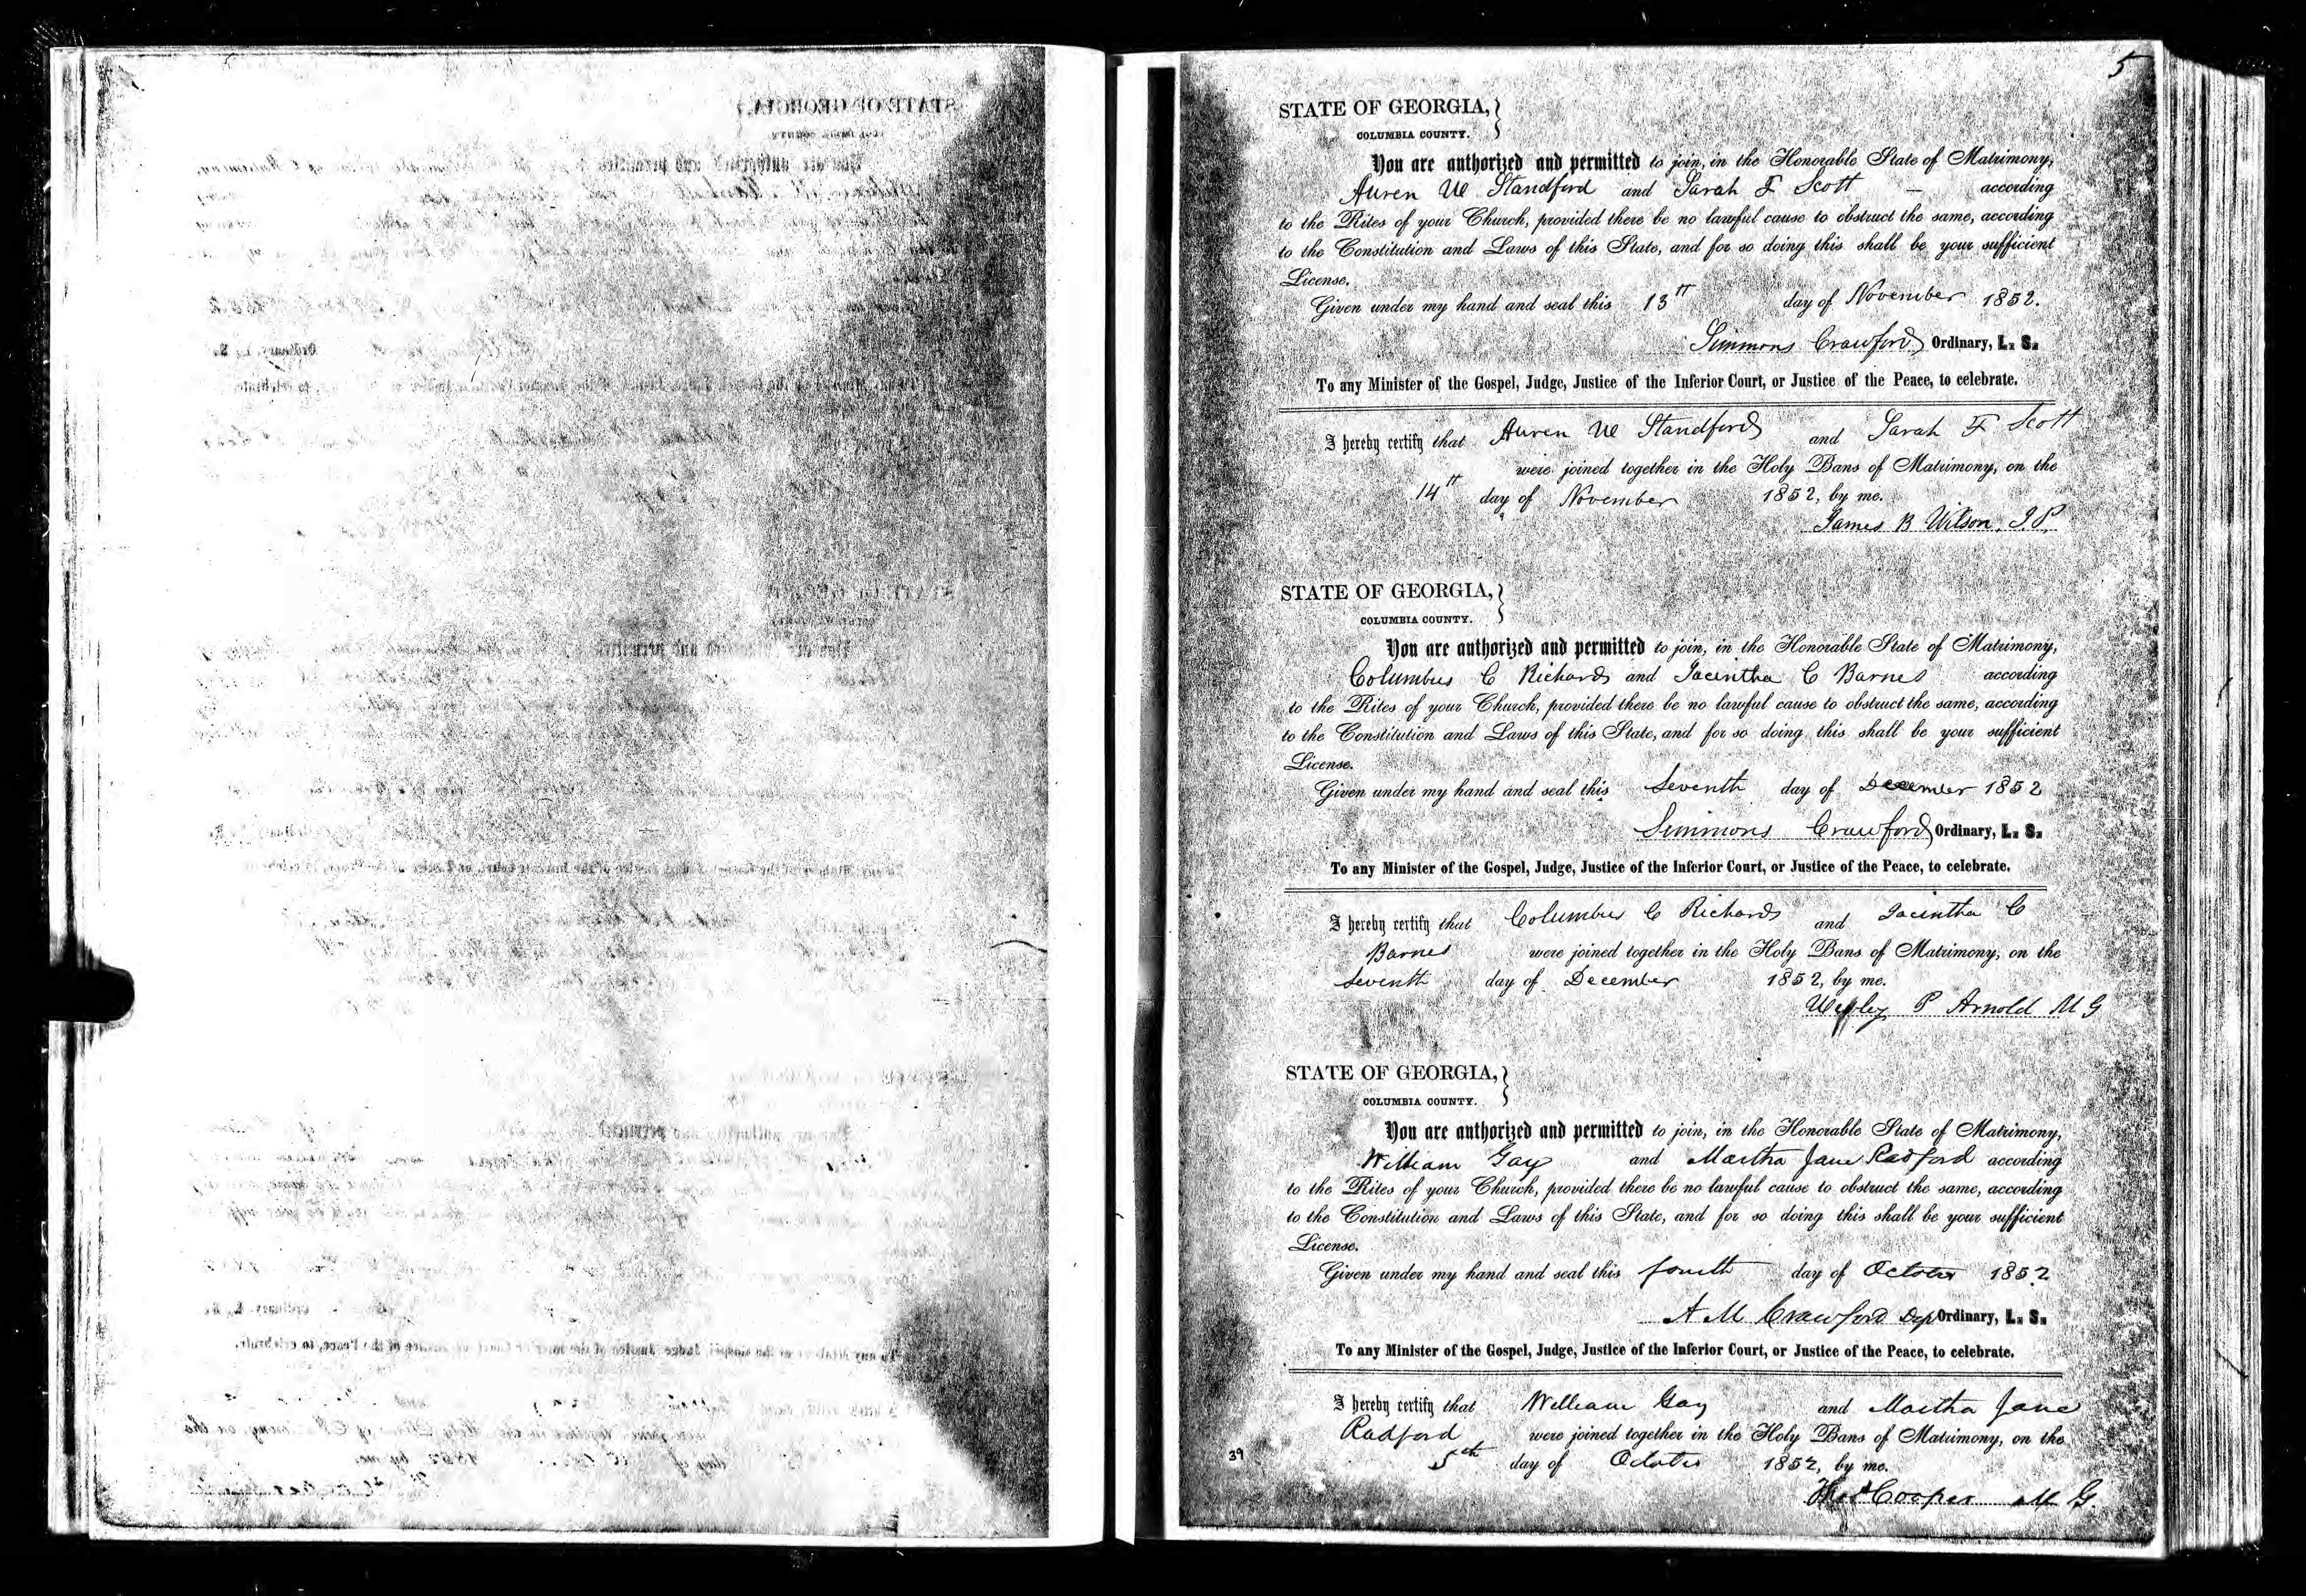 5
STATE OF GEORGIA,
COLUMBIA COUNTY.
You are authorized and permitted to join, in the Honorable State of Matrimony,
Auren W Standford and Sarah F Scott — according
to the Rites of your Church, provided there be no lawful cause to obstruct the same, according
to the Constitution and Laws of this State, and for so doing this shall be your sufficient
License.
Given under my hand and seal this 13th day of November 1852.
Simmons Crawford Ordinary, L. S.
To any Minister of the Gospel, Judge, Justice of the Inferior Court, or Justice of the Peace, to celebrate.
I hereby certify that Auren W Standford and Sarah F Scott
were joined together in the Holy Bans of Matrimony, on the
14th day of November 1852, by me.
James B Wilson, J.P.
STATE OF GEORGIA,
COLUMBIA COUNTY.
You are authorized and permitted to join, in the Honorable State of Matrimony,
Columbus C Richards and Jacintha C Barnes according
to the Rites of your Church, provided there be no lawful cause to obstruct the same, according
to the Constitution and Laws of this State, and for so doing this shall be your sufficient
License.
Given under my hand and seal this Seventh day of December 1852
Simmons Crawford Ordinary, L. S.
To any Minister of the Gospel, Judge, Justice of the Inferior Court, or Justice of the Peace, to celebrate.
I hereby certify that Columbus C Richards and Jacintha C
Barnes were joined together in the Holy Bans of Matrimony, on the
Seventh day of December 1852, by me.
Wesley P Arnold M G
STATE OF GEORGIA,
COLUMBIA COUNTY.
You are authorized and permitted to join, in the Honorable State of Matrimony,
William Gay and Martha Jane Radford according
to the Rites of your Church, provided there be no lawful cause to obstruct the same, according
to the Constitution and Laws of this State, and for so doing this shall be your sufficient
License.
Given under my hand and seal this fourth day of October 1852
A M Crawford Dep Ordinary, L. S.
To any Minister of the Gospel, Judge, Justice of the Inferior Court, or Justice of the Peace, to celebrate.
I hereby certify that William Gay and Martha Jane
Radford were joined together in the Holy Bans of Matrimony, on the
39
5th day of October 1852, by me.
Cooper M G.